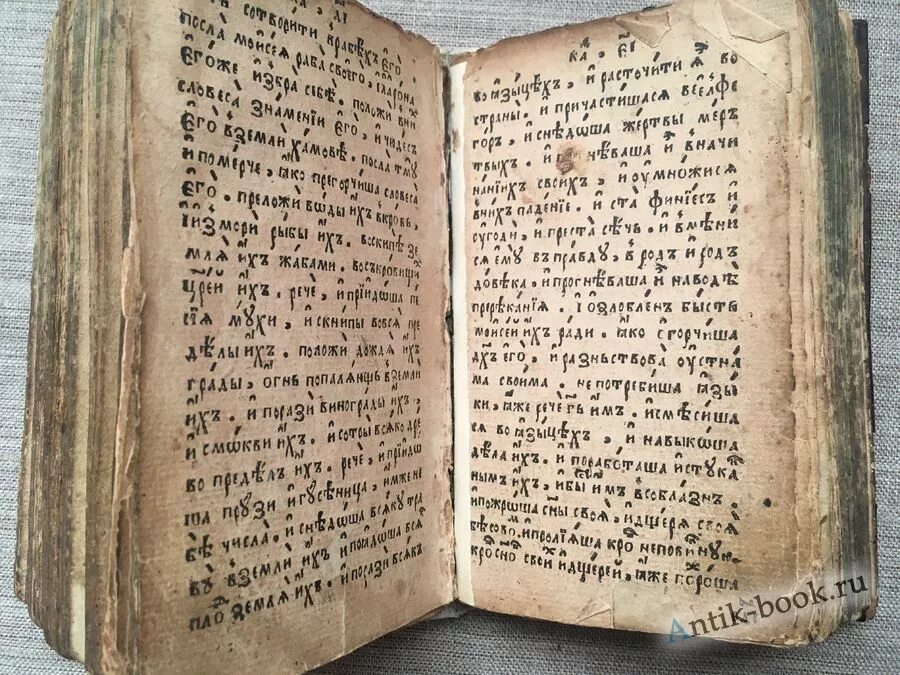 сотворити врабѣхъ є҆го̀ .
посла моѝсея раба своего̀ , а҆аро́на
є҆го́же и҆збра̀ себѣ̀ . положѝ вни́
словеса̀ зна́менїи є҆го̀ , и҆ чюде́съ
є҆го̀ вземлѝ ха́мовѣ . посла̀ тмꙋ̀
и҆ померчѐ , ꙗ҆́ко прегорчи́ша словеса̀
є҆го̀ . преложѝ во́ды и҆́хъ вкро́вь ,
и҆ и҆зморѝ ры́бы и҆́хъ . воскипѣ̀ зе
млѧ̀ и҆́хъ жа́бами . восъкро́вищи
цр҃е́й и҆́хъ . речѐ , и҆ прїидо́ша пе
сїѧ мꙋ́хи , и҆ скни́пы вовсѧ̀ пре
дѣ́лы и҆́хъ . положѝ дождѧ̀ и҆́хъ
гра́ды , ѻ҆́гнь попалѧ́ющь вземлѝ
и҆́хъ . и҆ поразѝ виногра́ды и҆́хъ ,
и҆ смо́кви и҆́хъ . и҆ сотры̀ всѧ́ко дре́
во предѣ́лъ и҆́хъ . речѐ , и҆ прїидо́
ша прꙋ́зи и҆ гꙋ́сѣница , и҆́мже не
бѣ̀ числа̀ , и҆ снѣдо́ша всѧ́кꙋ тра
вꙋ̀ вземлѝ и҆́хъ и҆ поѧдо́ша всѧ́
пло́ землѧ̀ и҆́хъ . и҆ поразѝ всѧ́къ
ка . є҃і
воꙗ҆зы́цѣхъ , и҆ расточи́ти ѧ҆̀ во
страны̀ . и҆ причасти́шасѧ веельфе
го́рꙋ , и҆ снѣдо́ша же́ртвы ме́р
твыхъ . и҆ прогнѣ́ваша и҆̀ вначи
на́нїихъ свои́хъ , и҆ оу҆мно́жисѧ
вни́хъ паде́нїе . и҆ ста̀ финїе́съ и҆
оу҆годѝ , и҆ преста̀ сѣ́чь . и҆ вмѣни́
сѧ є҆мꙋ̀ въпра́вдꙋ , вро́дъ и҆ ро́дъ
довѣ́ка . и҆ прогнѣ́ваша и҆̀ наводѣ̀
пререка́нїѧ . и҆ ѡ҆зло́бленъ бы́сть
моѝсеи и҆́хъ ради . ꙗ҆́ко ѡ҆горчи́ша
дх҃ъ є҆го̀ , и҆ разньствова̀ оу҆стна́
ма своима . не потреби́ша ꙗ҆зы́
ки , ꙗ҆́же речѐ гь҃ и҆́мъ . и҆ смѣси́ша
сѧ воꙗ҆зы́цѣхъ , и҆ навыко́ша
дѣло́ и҆́хъ . и҆ порабо́таша и҆стꙋка́
нымъ и҆́хъ , и҆ бы̀ и҆́мъ всобла́знъ .
и҆ пожро́ша сн҃ы своѧ̀ , и҆ дщеря своѧ̀
бѣсово́ . и҆ пролїѧ́ша кро́ непови́ннꙋю .
кро́ сн҃о́ свои́ и҆ дщере́й , ꙗ҆́же пожро́ша
Antik-book.ru